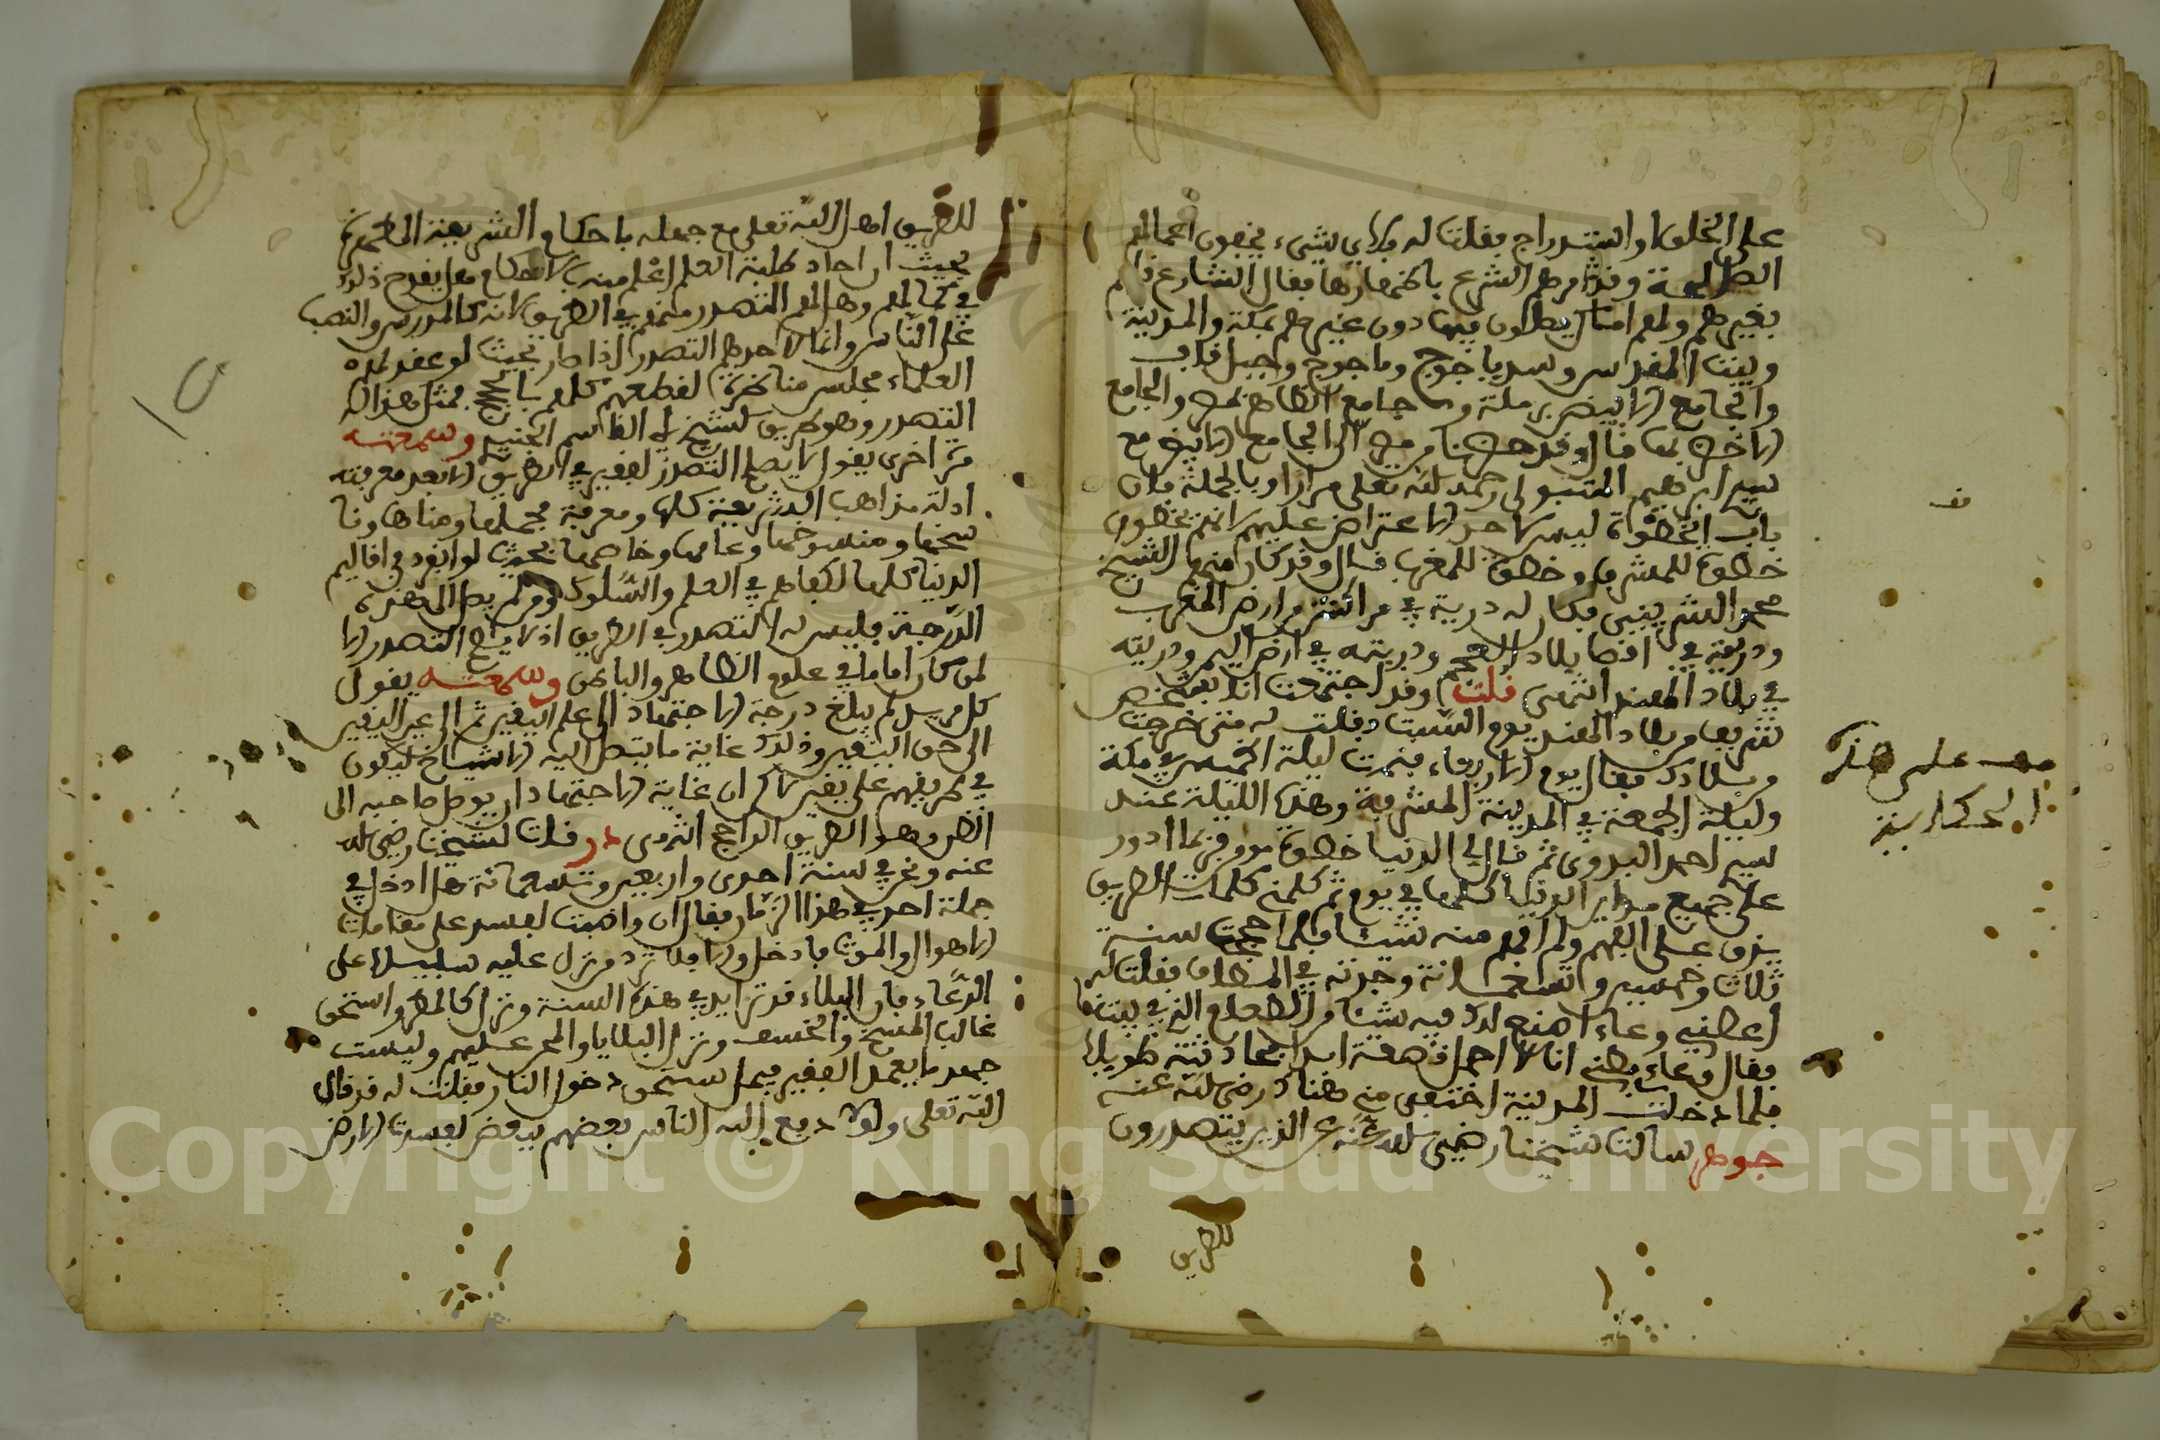 على الخلق او استدراج فقلت له فلاي شيء يخفون اعمالهم
الصالحة وقد امرهم الشرع باظهارها فقال الشارع قايم
بغيرهم ولهم اماكن يصلون فيها دون غيرهم بمكة والمدينة
وبيت المقدس وسد ياجوج وماجوج وجبل قاف
والجامع الابيض برملة وجامع الظاهر بمصر والجامع
الاخضر بها قال وقد حضرنا من مصر الى الجامع الابيض مع
سيدي ابرهيم المتبولي رحمه الله تعلى مرارا وبالجملة فان
باب الخطوة ليس لاحد الاعتراض عليهم لانهم يخطون
خطوة للمشرق وخطوة للمغرب قال وقد كان منهم الشيخ
محمد الشربيني فكان له ذرية في مراكش من ارض المغرب
وذرية في اقصا بلاد العجم وذرية في ارض اليمن وذرية
في بلاد الهند انتهى قلت وقد اجتمعت انا بشخص
شريف من بلاد الهند يوم السبت فقلت له متى خرجت
من بلادك فقال يوم الاربعاء فنمت ليلة الخميس في مكة
وليلة الجمعة في المدينة المشرفة وهذه الليلة عند
سيدي احمد البدوي ثم قال لي الدنيا خطوة مومن فربما ادور
على جميع مداين الدنيا كلها في يوم ثم كلمني كلمات الطريق
يدق على الفهم ولم افهم منه شيئا فلما حججت سنة
ثلاث وخمسين وتسعمائة وجدته في المطاف فقلت له
اعطني وعاء اضع لك فيه شيئا من الطعام الذي في بيتنا
فقال وعاءي بطني انا لا احمل قصعة ابدا فحادثته طويلا
فلما دخلت المدينة اختفى مني هناك رضي الله عنه
جوهر سالت شيخنا رضي الله عنه عن الذين يتصدرون
للطريق
هذه الحكاية
للطريق اهل الله تعلى مع جهله باحكام الشريعة المطهرة
بحيث ان احاد طلبة العلم اعلم منه بالاحكام هل يقدح ذلك
في كمالهم وهل لهم التصدر منهم في الطريق لانه كالمدرس والنصب
على الناس وانما لاحدهم التصدر اذا صار بحيث لو عقد له
العلماء مجلس مناظرة لقطعهم كلهم بالحجج فمثل هذا له
التصدر وهو طريق الشيخ ابي القاسم الجنيد وسمعته
مرة اخرى يقول لا يصلح التصدر لفقير في الطريق الا بعد معرفته
ادلة مذاهب الشريعة كلها ومعرفة مجملها ومبناها ونا
سخها ومنسوخها وعامها وخاصها بحيث لو انفرد في اقاليم
الدنيا كلها لكفاهم في العلم والسلوك ومن لم يصل الى هذه
الدرجة فليس له التصدر في الطريق اذ لا يصلح التصدر الا
لمن كان اماما في علوم الظاهر والباطن وسمعته يقول
كل من لم يبلغ درجة الاجتهاد الى علم اليقين ثم الى عين اليقين
الى حق اليقين وذلك غاية ما يتصل اليه الاشياخ ليكون
في طريقهم على يقين لان غاية الاجتهاد ان يوصل صاحبه الى
الظن وهو الطريق الراجح انتهى در قلت لشيخنا رضي الله
عنه ونحن في سنة احدى واربعين وتسعمائة هل ادخل في
حملة احد في هذا الزمان فقال ان واطبت نفسك على مقامات
الاهوال والموت فادخل والا فلا ترد من نزل عليه سبيلا على
الدعاء فان البلاء قد تزايد في هذه السنة ونزل كالمطر واستحق
غالب المسخ والخسف ونزل البلايا والمحن عليهم وليست
جهد ما يعمل الفقير فيمن استحق دخول النار فقلت له قد قال
الله تعلى ولولا دفع الله الناس بعضهم ببعض لفسدت الارض